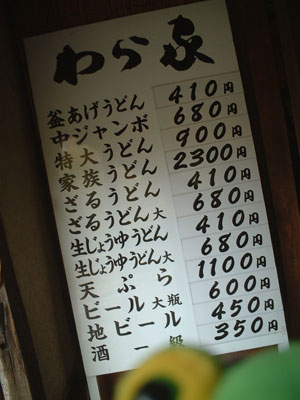 わら家
釜あげうどん 410円
中ジャンボ 680円
特大うどん 900円
家族うどん 2300円
ざるうどん 410円
ざるうどん大 680円
生じょうゆうどん 410円
生じょうゆうどん大 680円
天ぷら 1100円
ビール大瓶 600円
地ビール 450円
酒一級 350円